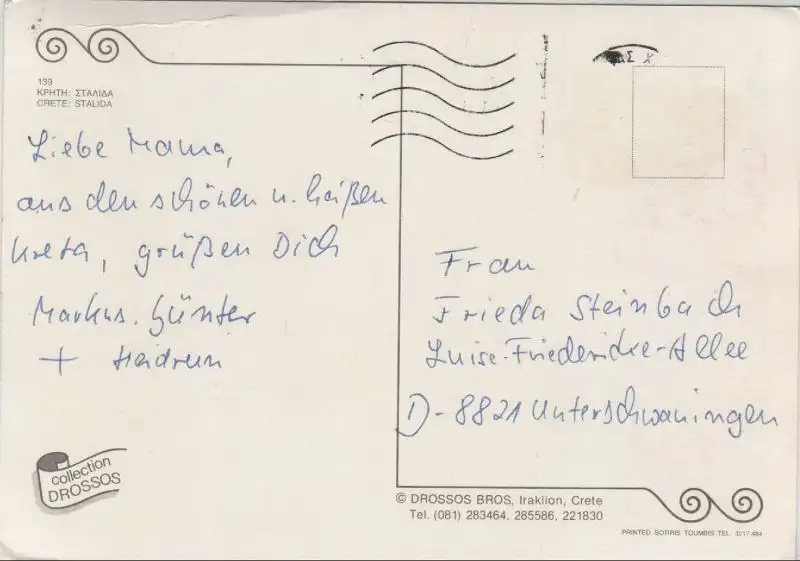 139
ΚΡΗΤΗ: ΣΤΑΛΙΔΑ
CRETE: STALIDA
Liebe Mama,
aus den schönen u. heißen
Kreta, grüßen Dich
Markus. Günter
+ Heidrun
Frau
Frieda Steinbach
Luise-Friedericke-Allee
D-8821 Unterschwaningen
collection
DROSSOS
© DROSSOS BROS, Iraklion, Crete
Tel. (081) 283464. 285586, 221830
PRINTED SOTIRIS TOUMBIS TEL. 3217.484